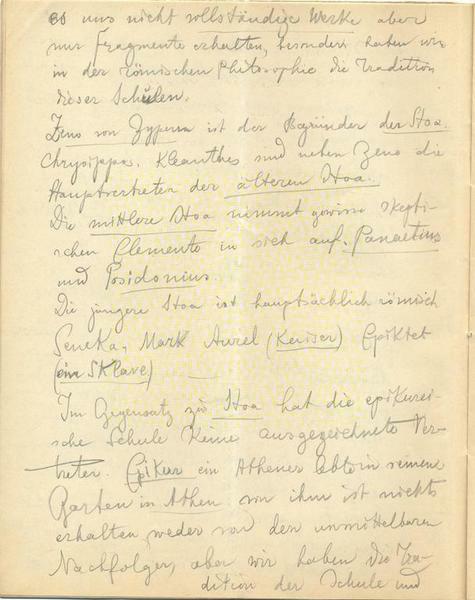 es uns nicht vollständige Werke aber
nur Fragmente erhalten, besonders haben wir
in der römischen Philosophie die Tradition
dieser Schulen.
Zeno von Zypern ist der Begründer der Stoa.
Chrysippa, Kleanthes sind neben Zeno die
Hauptvertreter der älteren Stoa.
Die mittlere Stoa nimmt gewisse skepti-
schen Elemente in sich auf. Panaetius
und Posidonius.
Die jüngere Stoa ist hauptsächlich römisch
Seneka, Mark Aurel (Keiser) Epiktet
(ein Sklave)
Im Gegensatz zur Stoa hat die epikurei-
sche Schule Keine ausgezeichnete Ver-
treter. Epikur ein Athener lebt in seinem
Garten in Athen von ihm ist nichts
erhalten weder von den unmittelbaren
Nachfolger, aber wir haben die Tra-
dition der Schule und